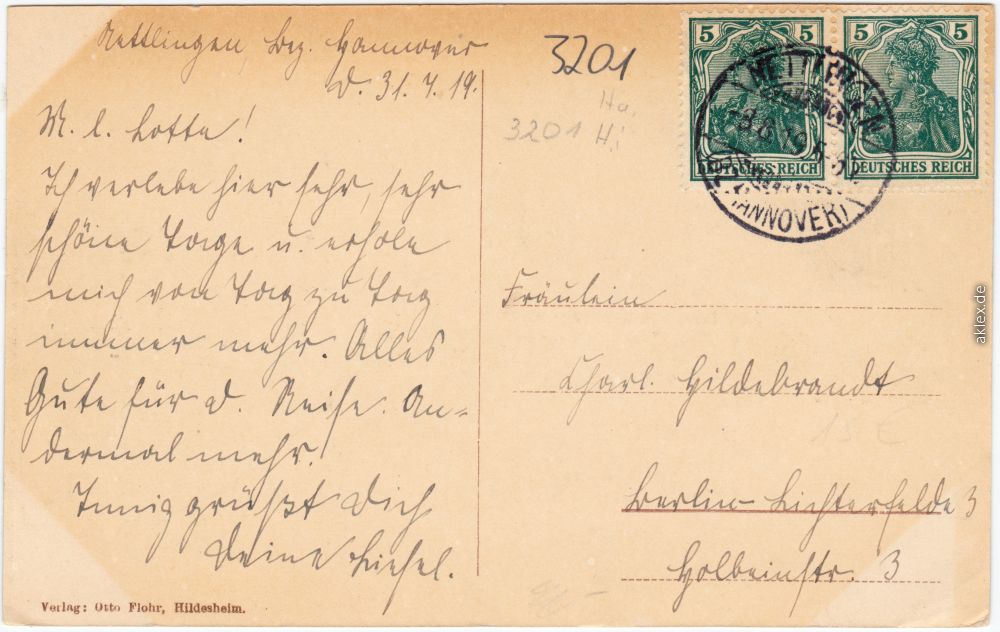 Nettlingen, Bez. Hannover
d. 31.7.19.
M. l. Lotte!
Ich verlebe hier sehr, sehr
schöne Tage u. erhole
mich von Tag zu Tag
immer mehr. Alles
Gute für d. Reise. An-
dermal mehr!
Innig grüßt Dich
Deine Liesel.
Verlag: Otto Flohr, Hildesheim.
3201
Ha.
3201 Hi
5 5 5 5
DEUTSCHES REICH DEUTSCHES REICH
NETTLINGEN
(HANNOVER)
Fräulein
Charl. Hildebrandt
15 €
Berlin-Lichterfelde 3
Holbeinstr. 3
aklex.de